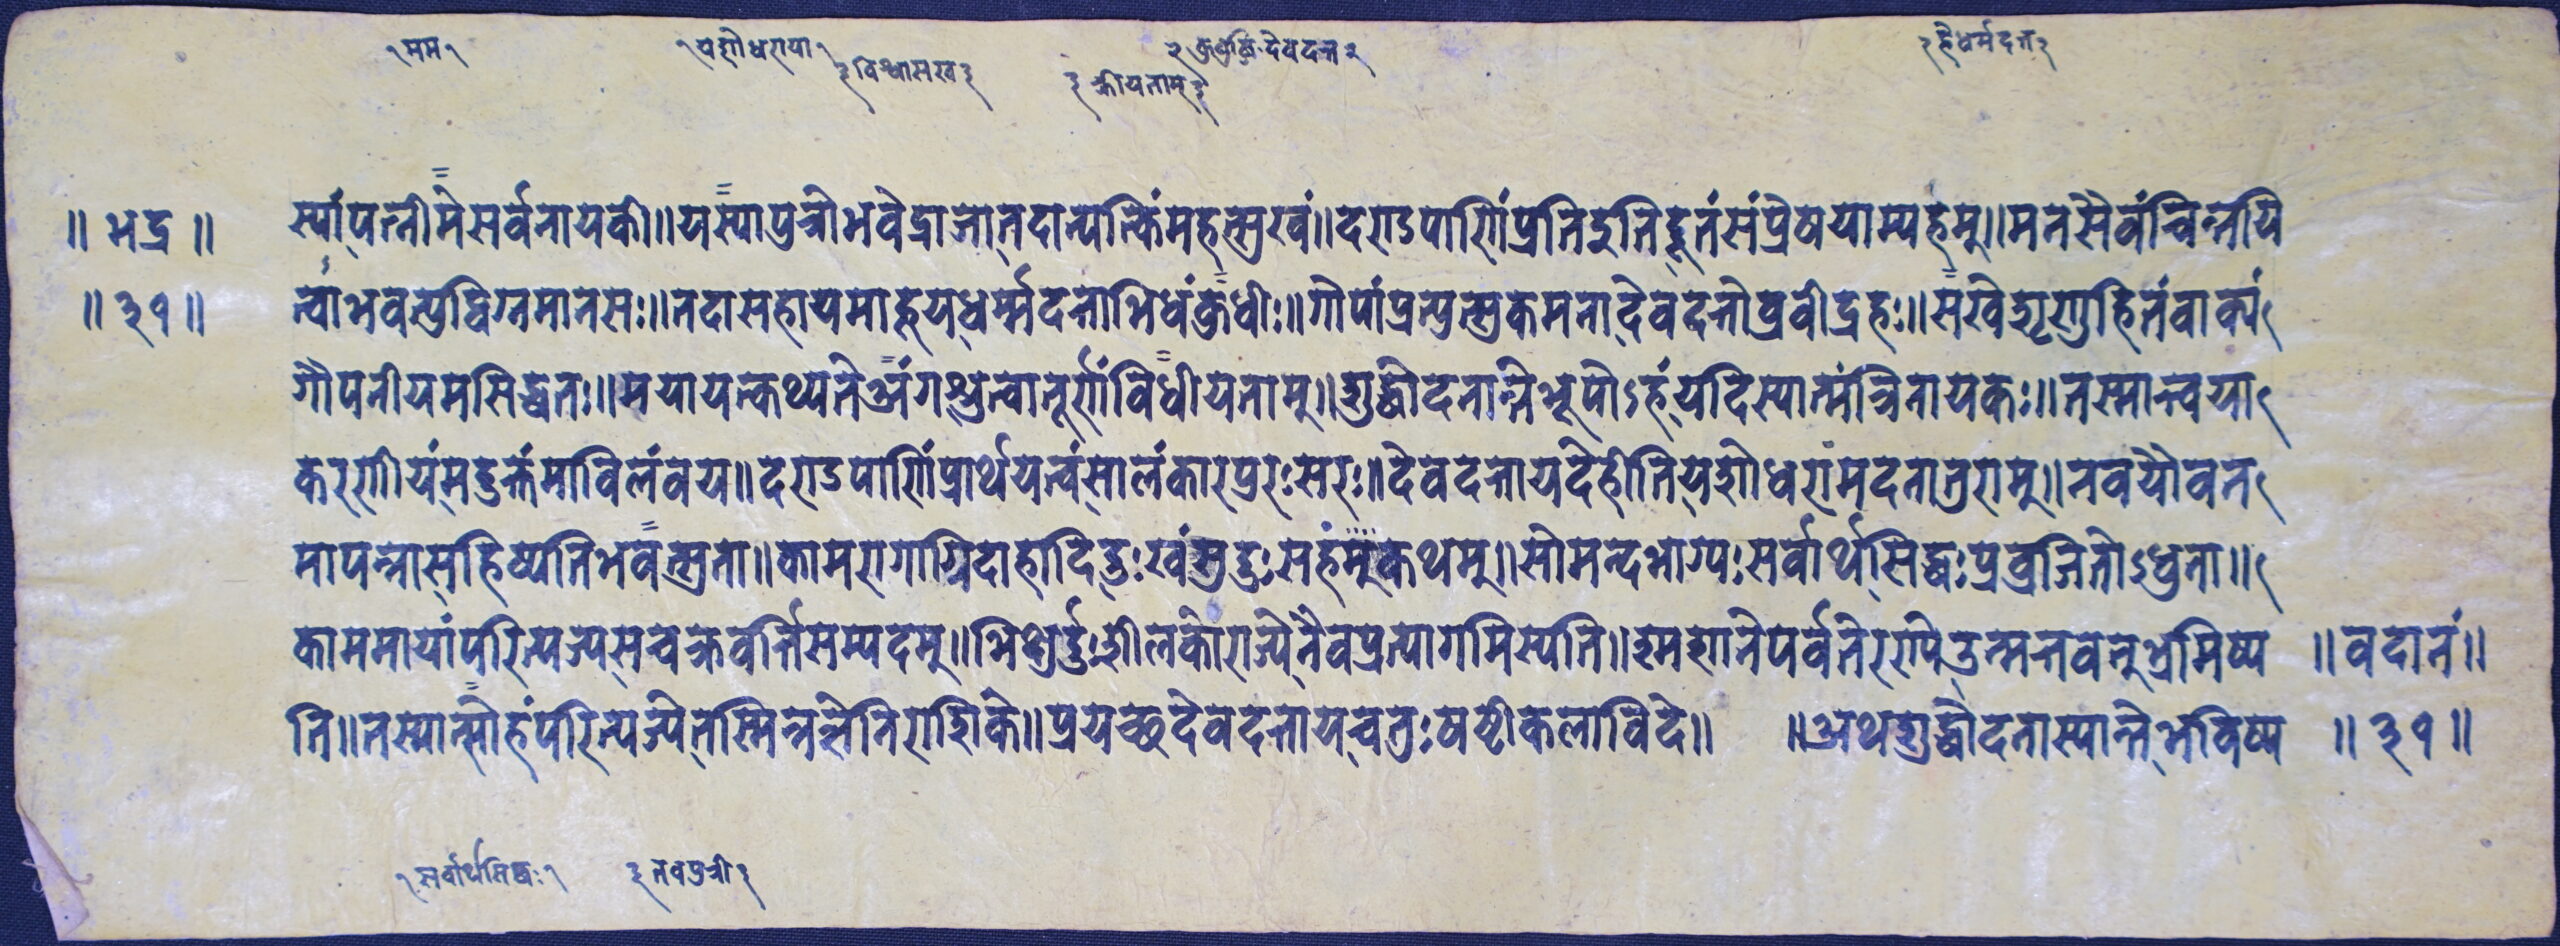 १ मम १
१ यशोधराया १
३ विश्वासख ३
३ क्रीयताम् ३
२ कुबुद्धि देवदत्त २
२ हे धर्मदत्त २
॥ भद्र ॥
॥ ३१ ॥
स्यां पत्नीमे सर्वनायकी॥ यस्या पुत्रीभवेद्राज्ञो तदान्यत्किंमहत्सुखं॥ दराऽपाणिंप्रतिइतिद्दूतंसंप्रेषयाम्यहम्॥ मनसैवंचिन्तयि
त्वाभवत्युद्विग्नमानसः॥ तदासहायमाहूयधर्म्मदत्ताभिधंकुधीः॥ गोपांप्रत्युत्सुकमनादेवदत्तोब्रवीद्रहः॥ सखेशृणुहितंवाक्यं
गोपनीयमसिद्धतः॥ मयायत्कथ्यतेअंगश्रुत्वातूर्णंविधीयताम्॥ शुद्धोदनान्तेभूपोऽहंयदिस्यात्मंत्रिनायकः॥ तस्मात्त्वया
करणीयंमदुक्तंमाविलंवय॥ दराऽपाणिंप्रार्थयत्वंसालंकारपुरःसरः॥ देवदत्तायदेहीतियशोधरांमदनातुराम्॥ नवयौवन
मापन्नासहिष्यतिभवत्सुता॥ कामरागाग्निदाहादिदुःखंसुदुःसहंमुकथम्॥ सोमन्दभाग्यःसर्वार्थसिद्धःप्रव्रजितोऽधुना॥
काममायांपरित्यज्यसचक्रवर्त्तिसम्पदम्॥ भिक्षुर्दुःशीलकोराज्येनैवप्रत्यागमिस्यति॥ श्मशानेपर्वतेरण्येउन्मत्तवत्भ्रमिष्य
॥ वदानं॥
ति॥ तस्यात्सोहंपरित्यज्येतस्मिन्नन्तेतिराशिके॥ प्रयच्छदेवदत्तायचतुःषष्टीकलाविदे॥ ॥ अथशुद्धोदनास्यान्तेभविष्य
॥ ३१ ॥
१ सर्वार्थसिद्धः १
३ तवपुत्री ३